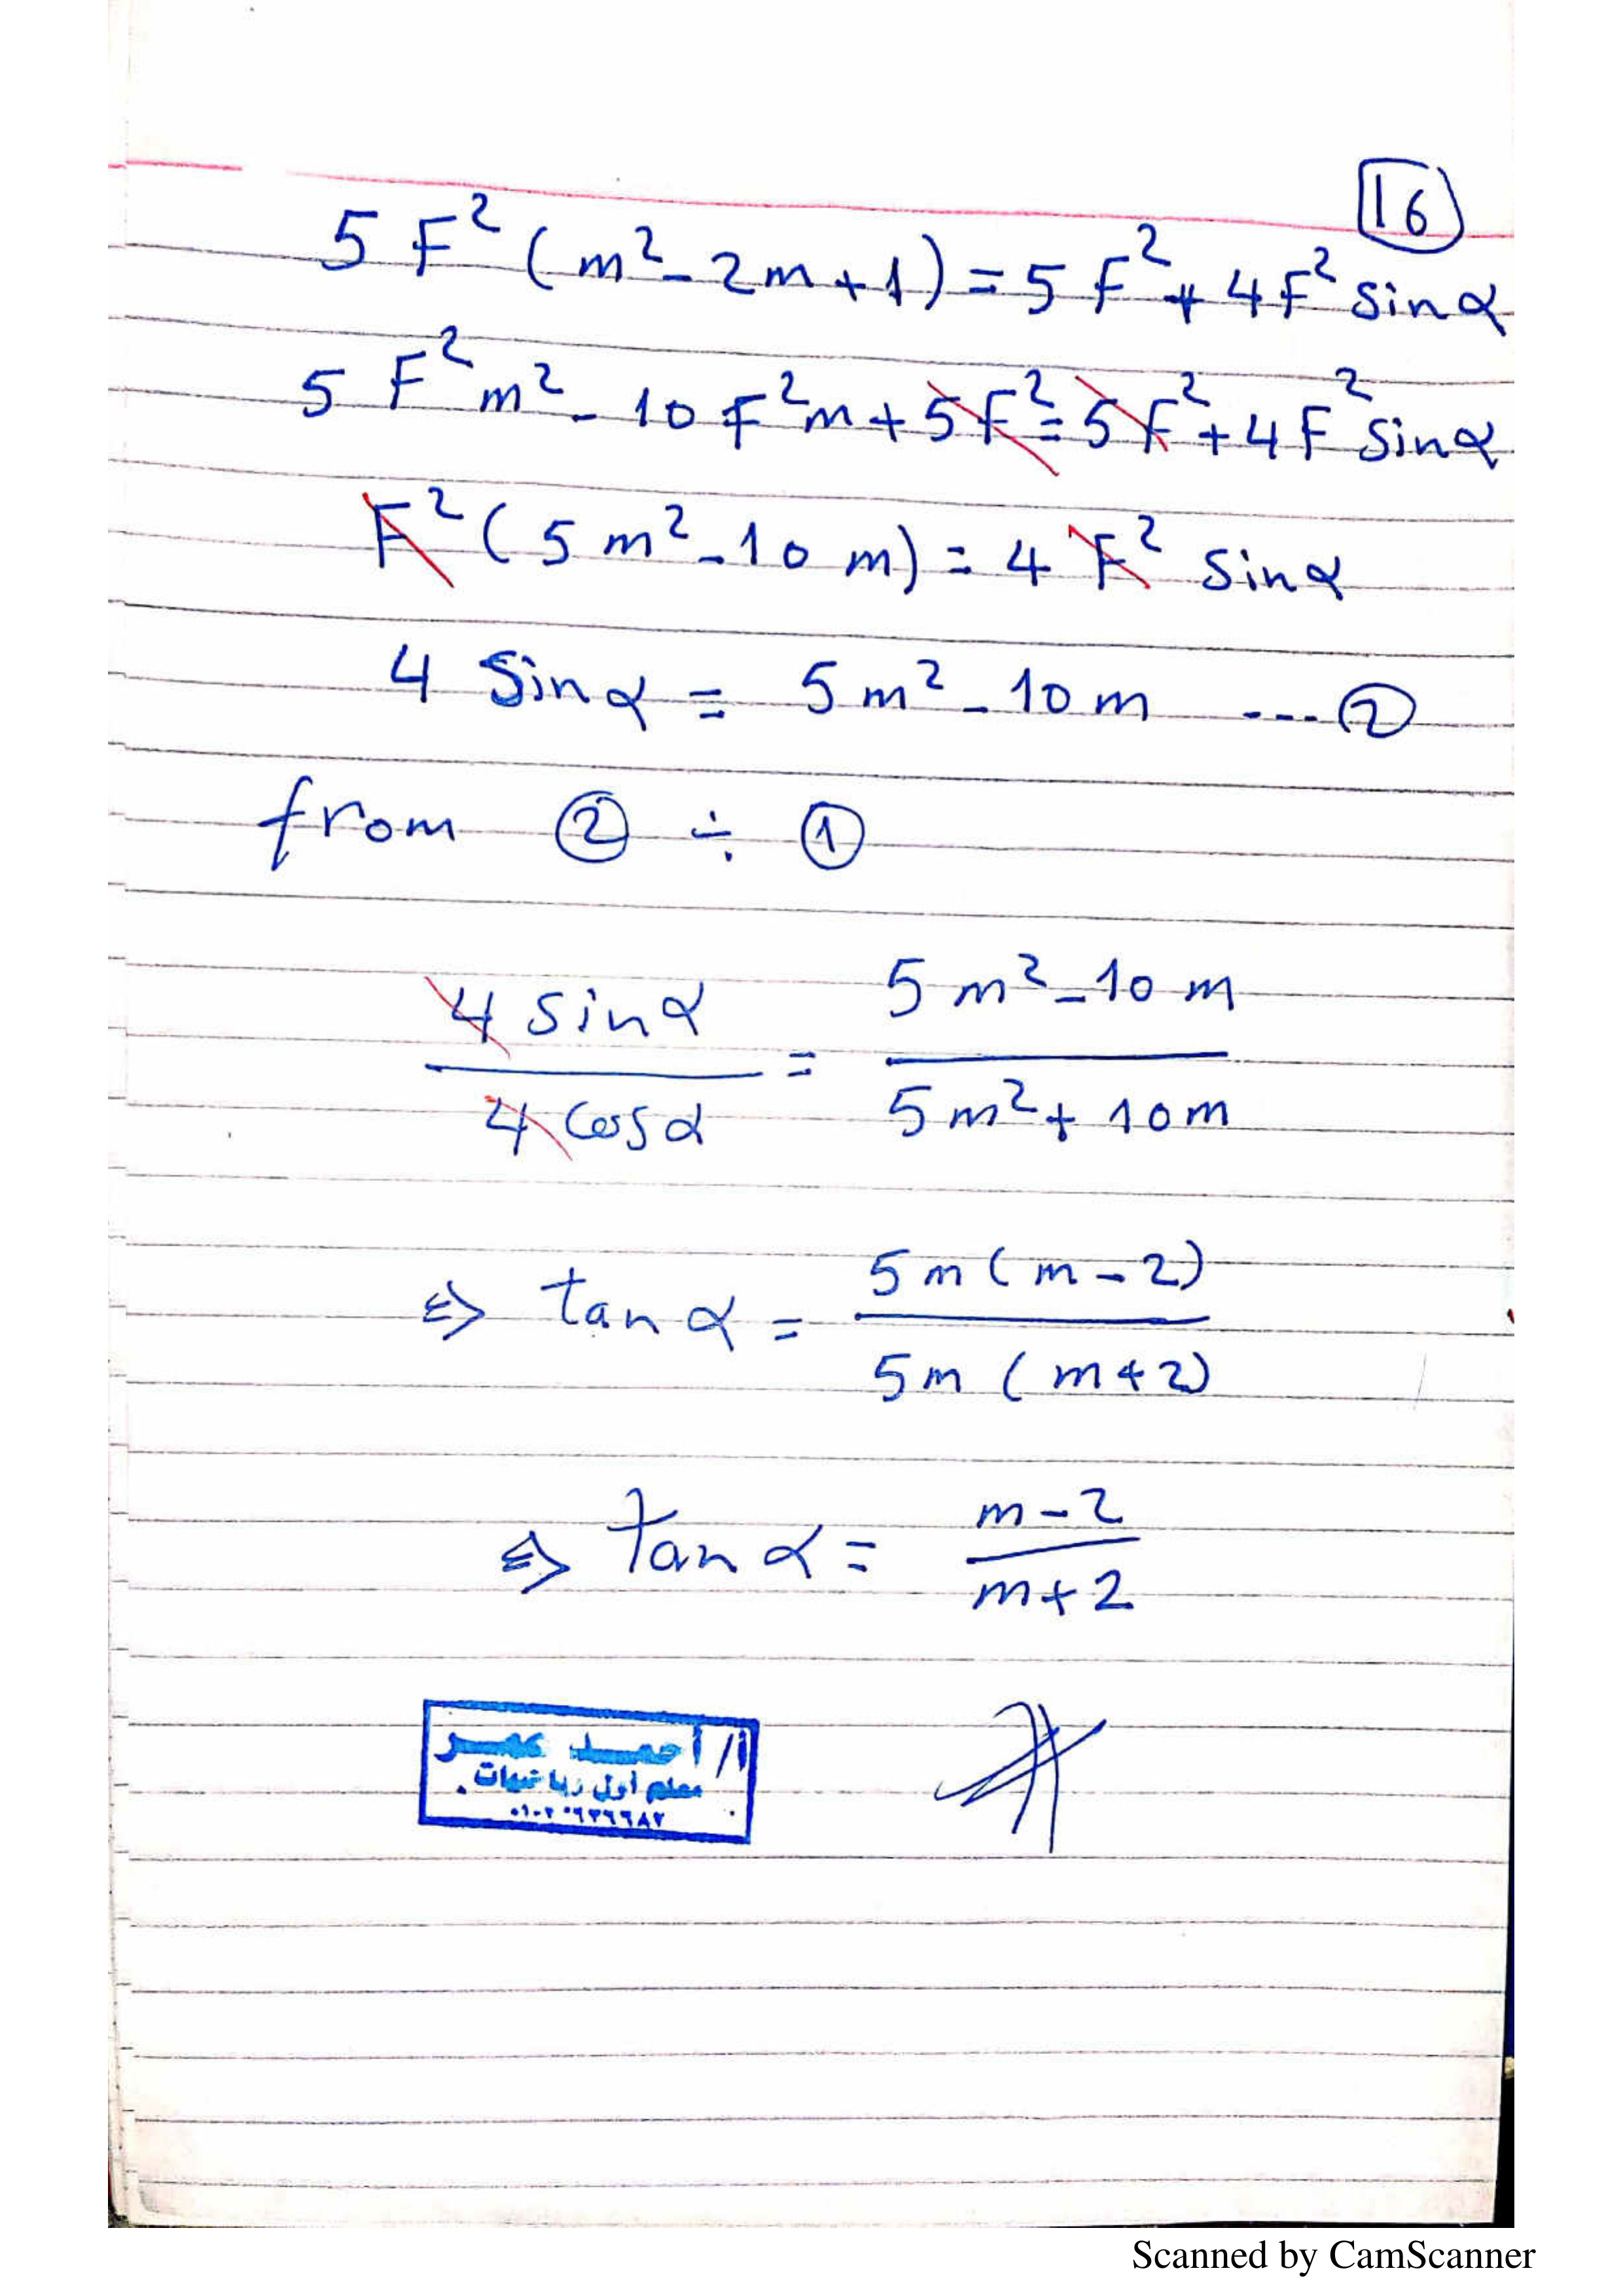 16
5 F² (m² - 2m + 1) = 5 F² + 4 F² sin α
5 F² m² - 10 F² m + 5 F² = 5 F² + 4 F² sin α
F² (5 m² - 10 m) = 4 F² sin α
4 sin α = 5 m² - 10 m --- ②
from ② ÷ ①
4 sin α / 4 cos α = 5 m² - 10 m / 5 m² + 10 m
⇒ tan α = 5 m (m - 2) / 5 m (m + 2)
⇒ tan α = m - 2 / m + 2
أ/ أحمد عمر
معلم أول رياضيات
Scanned by CamScanner